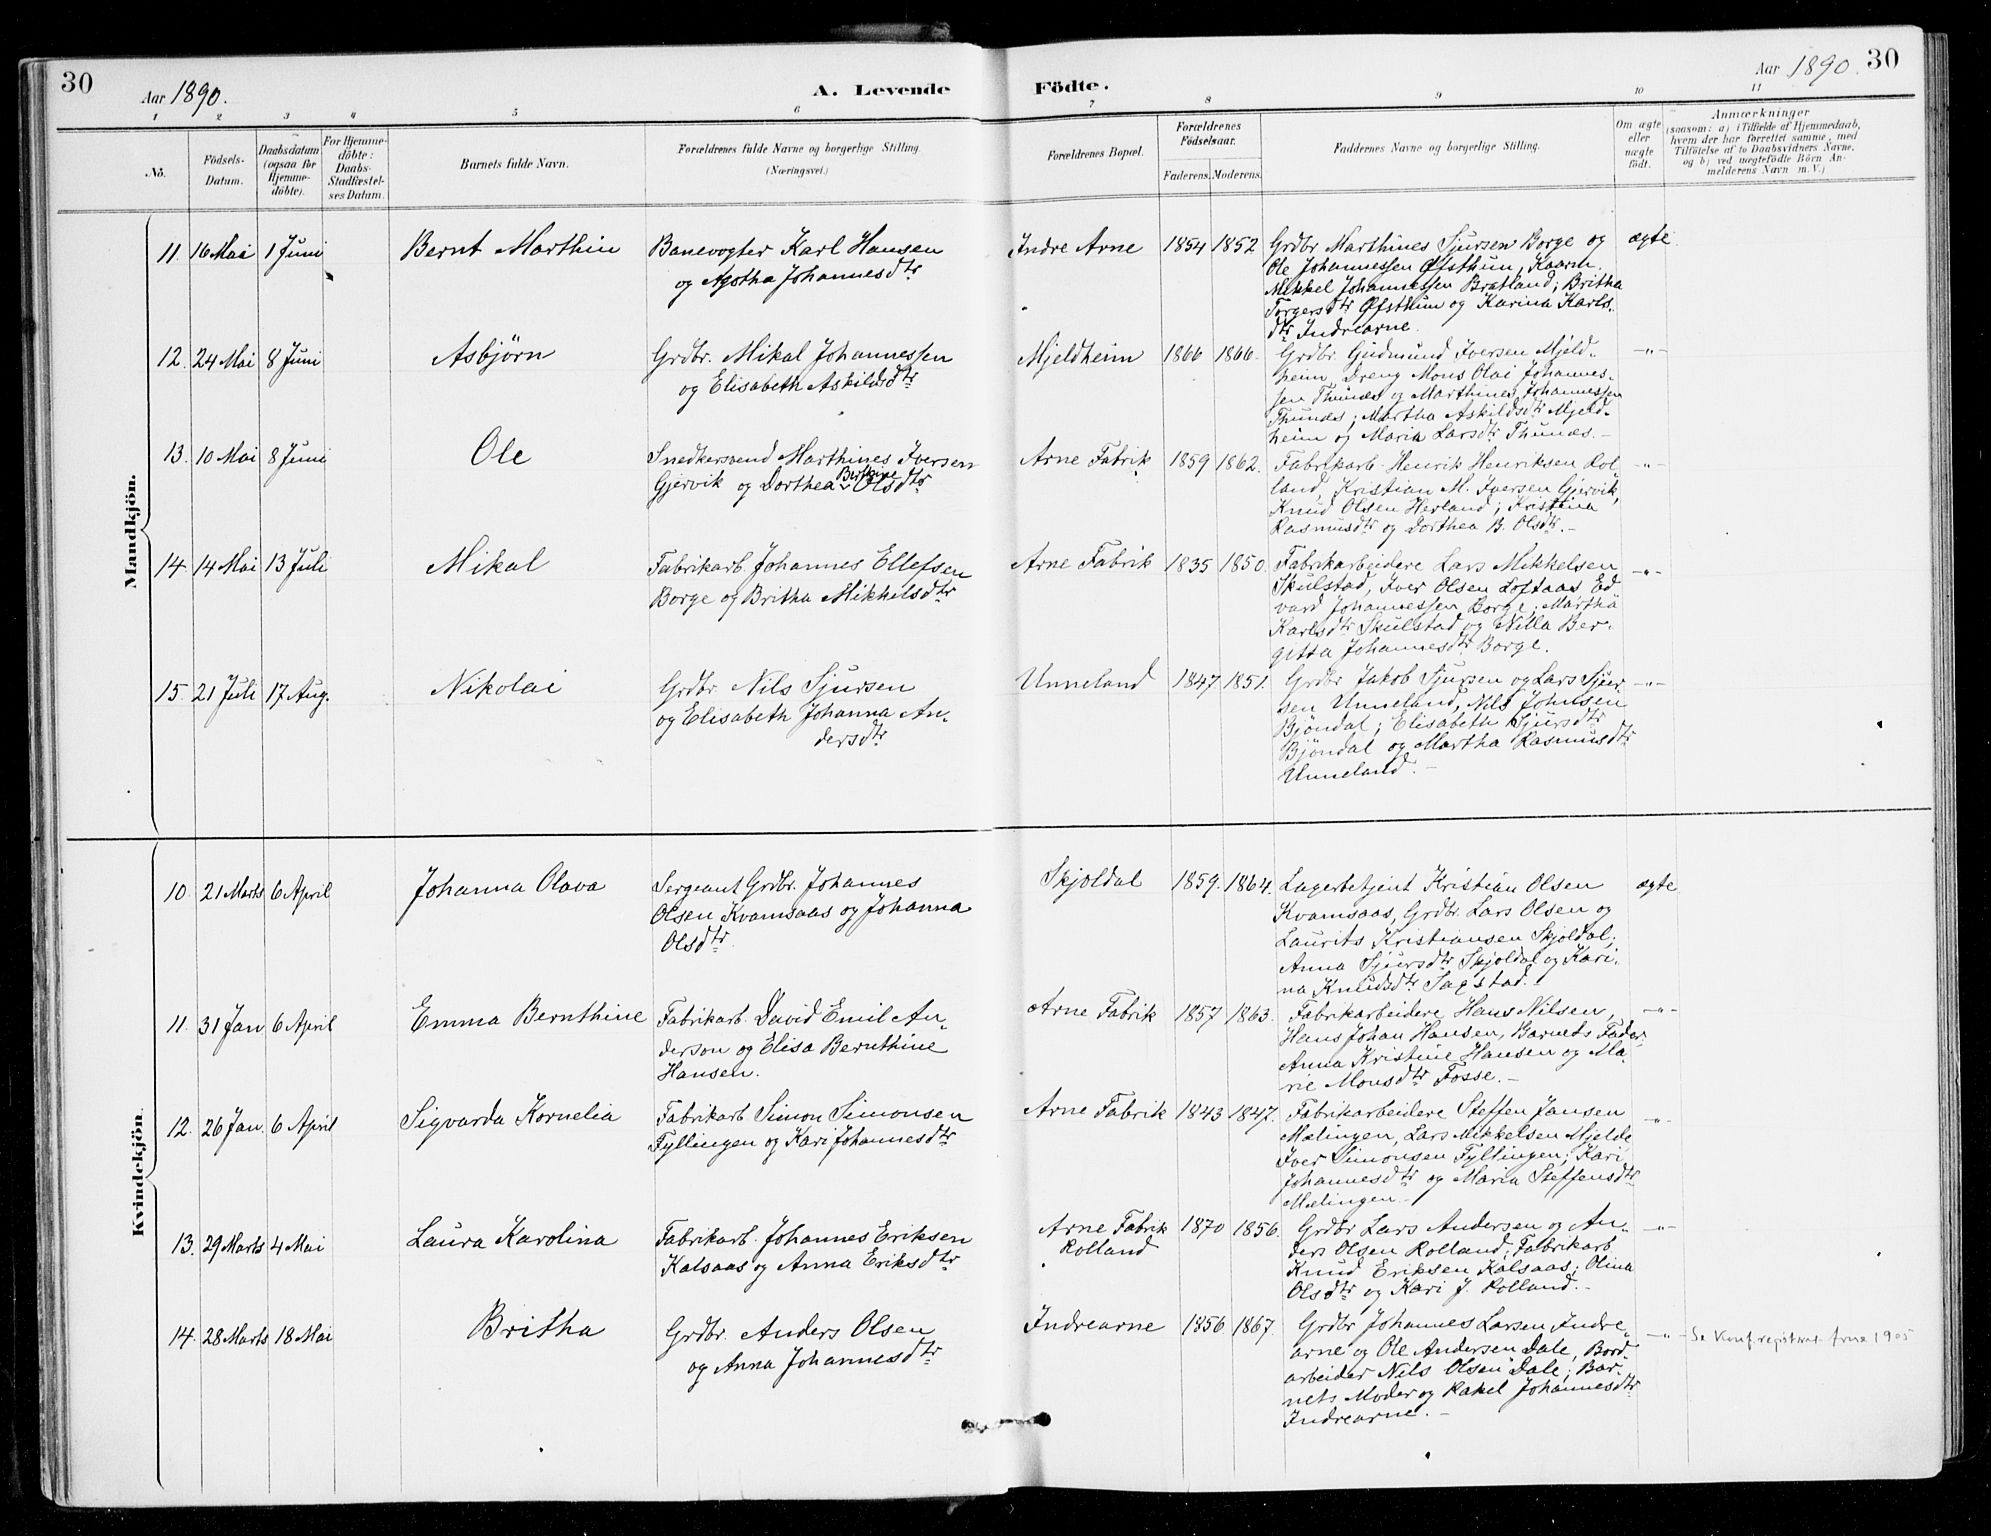 30
Aar 1890.
A. Levende
Födte.
Aar 1890.
30
1 2 3 4 5 6 7 8 9 10 11
No.
Födsels-
Datum.
Daabsdatum
(ogsaa for
Hjemme-
döbte).
For Hjemme-
döbte:
Daabs-
Stadfæstel-
ses Datum.
Barnets fulde Navn.
Forældrenes fulde Navne og borgerlige Stilling.
(Næringsvei.)
Forældrenes Bopæl.
Forældrenes
Födselsaar.
Faderens. Moderens.
Faddernes Navne og borgerlige Stilling.
Om ægte
eller
uægte
födt.
Anmærkninger
(saasom: a) i Tilfælde af Hjemmedaab,
hvem der har forrettet samme, med
Tilföielse af to Daabsvidners Navne,
og b) ved uægtefödte Börn An-
melderens Navn m. V.)
Mandkjön.
11. 16 Mai 1 Juni
Bernt Marthin
Banevogter Karl Hansen
og Agotha Johannesdtr
Indre Arne
1854 1852
Grdbr Marthines Sjursen Borge og
Ole Johannessen Øfsthun, Kaarm.
Mikkel Johannessen Bratland; Britha
Torgersdtr Øfsthun og Karina Karls-
dtr Indrearne.
ægte
12. 24 Mai 8 Juni
Asbjørn
Grdbr. Mikal Johannessen
og Elisabeth Askildsdtr
Mjeldheim
1866 1866.
Grdbr. Gudmund Iversen Mjeld-
heim, Dreng Mons Olai Johannes-
sen Thunæs og Marthines Johannessen
Thunæs; Martha Askildsdtr Mjeld-
heim og Maria Larsdtr Thunæs.-
-"-
13. 10 Mai 8 Juni
Ole
Snedkersvend Marthines Iversen
Gjervik og Dorthea Birthine Olsdtr
Arne Fabrik
1859 1862.
Fabrikarb. Henrik Henriksen Rol-
land, Kristian M. Iversen Gjervik,
Knud Olsen Herland; Kristina
Rasmusdtr og Dorthea B. Olsdtr.-
-"-
14. 14 Mai 13 Juli
Mikal
Fabrikarb. Johannes Ellefsen
Borge og Britha Mikkelsdtr
Arne Fabrik
1835 1850.
Fabrikarbeidere Lars Mikkelsen
Skulstad, Iver Olsen Loftaas Ed
vard Johannessen Borge; Martha
Karlsdtr Skulstad og Nilla Ber-
gitta Johannesdtr Borge.
-"-
15. 21 Juli 17 Aug.
Nikolai
Grdbr. Nils Sjursen
og Elisabeth Johanna An-
dersdtr
Unneland
1847. 1851.
Grdbr Jakob Sjursen og Lars Sjur-
sen Unneland, Nils Johnsen
Bjöndal; Elisabeth Sjursdtr
Bjöndal og Martha Rasmusdtr
Unneland.-
-"-
Kvindekjön.
10. 21 Marts 6 April
Johanna Olava
Sergeant Grdbr. Johannes
Olsen Kvamsaas og Johanna
Olsdtr
Skjoldal
1859. 1864.
Lagerbetjent Kristian Olsen
Kvamsaas, Grdbr. Lars Olsen og
Laurits Kristiansen Skjoldal;
Anna Sjursdtr Skjoldal og Kari-
na Knudsdtr Sagstad.-
ægte
11. 31 Jan. 6 April
Emma Bernthine
Fabrikarb. David Emil An-
derson og Elisa Bernthine
Hansen.
Arne Fabrik
1857 1863.
Fabrikarbeidere Hans Nilsen,
Hans Johan Hansen, Barnets Fader
Anna Kristine Hansen og Ma-
rie Monsdtr Fosse.-
-"-
12. 26 Jan. 6 April
Sigvarda Kornelia
Fabrikarb Simon Simonsen
Fyllingen og Kari Johannesdtr
Arne Fabrik
1843 1847.
Fabrikarbeidere Steffen Jansen
Mælingen, Lars Mikkelsen Mjelde
Iver Simonsen Fyllingen; Kari
Johannesdtr og Maria Steffensdtr
Mælingen.-
-"-
13. 29 Marts 4 Mai
Laura Karolina
Fabrikarb. Johannes Eriksen
Kalsaas og Anna Eriksdtr
Arne Fabrik
Rolland
1870 1856.
Grdbr Lars Andersen og An-
ders Olsen Rolland; Fabrikarb.
Knud Eriksen Kalsaas; Olina
Olsdtr og Kari J. Rolland.-
-"-
14. 28 Marts 18 Mai
Britha
Grdbr. Anders Olsen
og Anna Johannesdtr
Indrearne
1856 1867.
Grdbr Johannes Larsen Indre-
arne og Ole Andersen Dale, Bord
arbeider Nils Olsen Dale; Bar-
nets Moder og Rakel Johannesdtr
Indrearne.-
-"-
Se Konf.registret Arna 1905